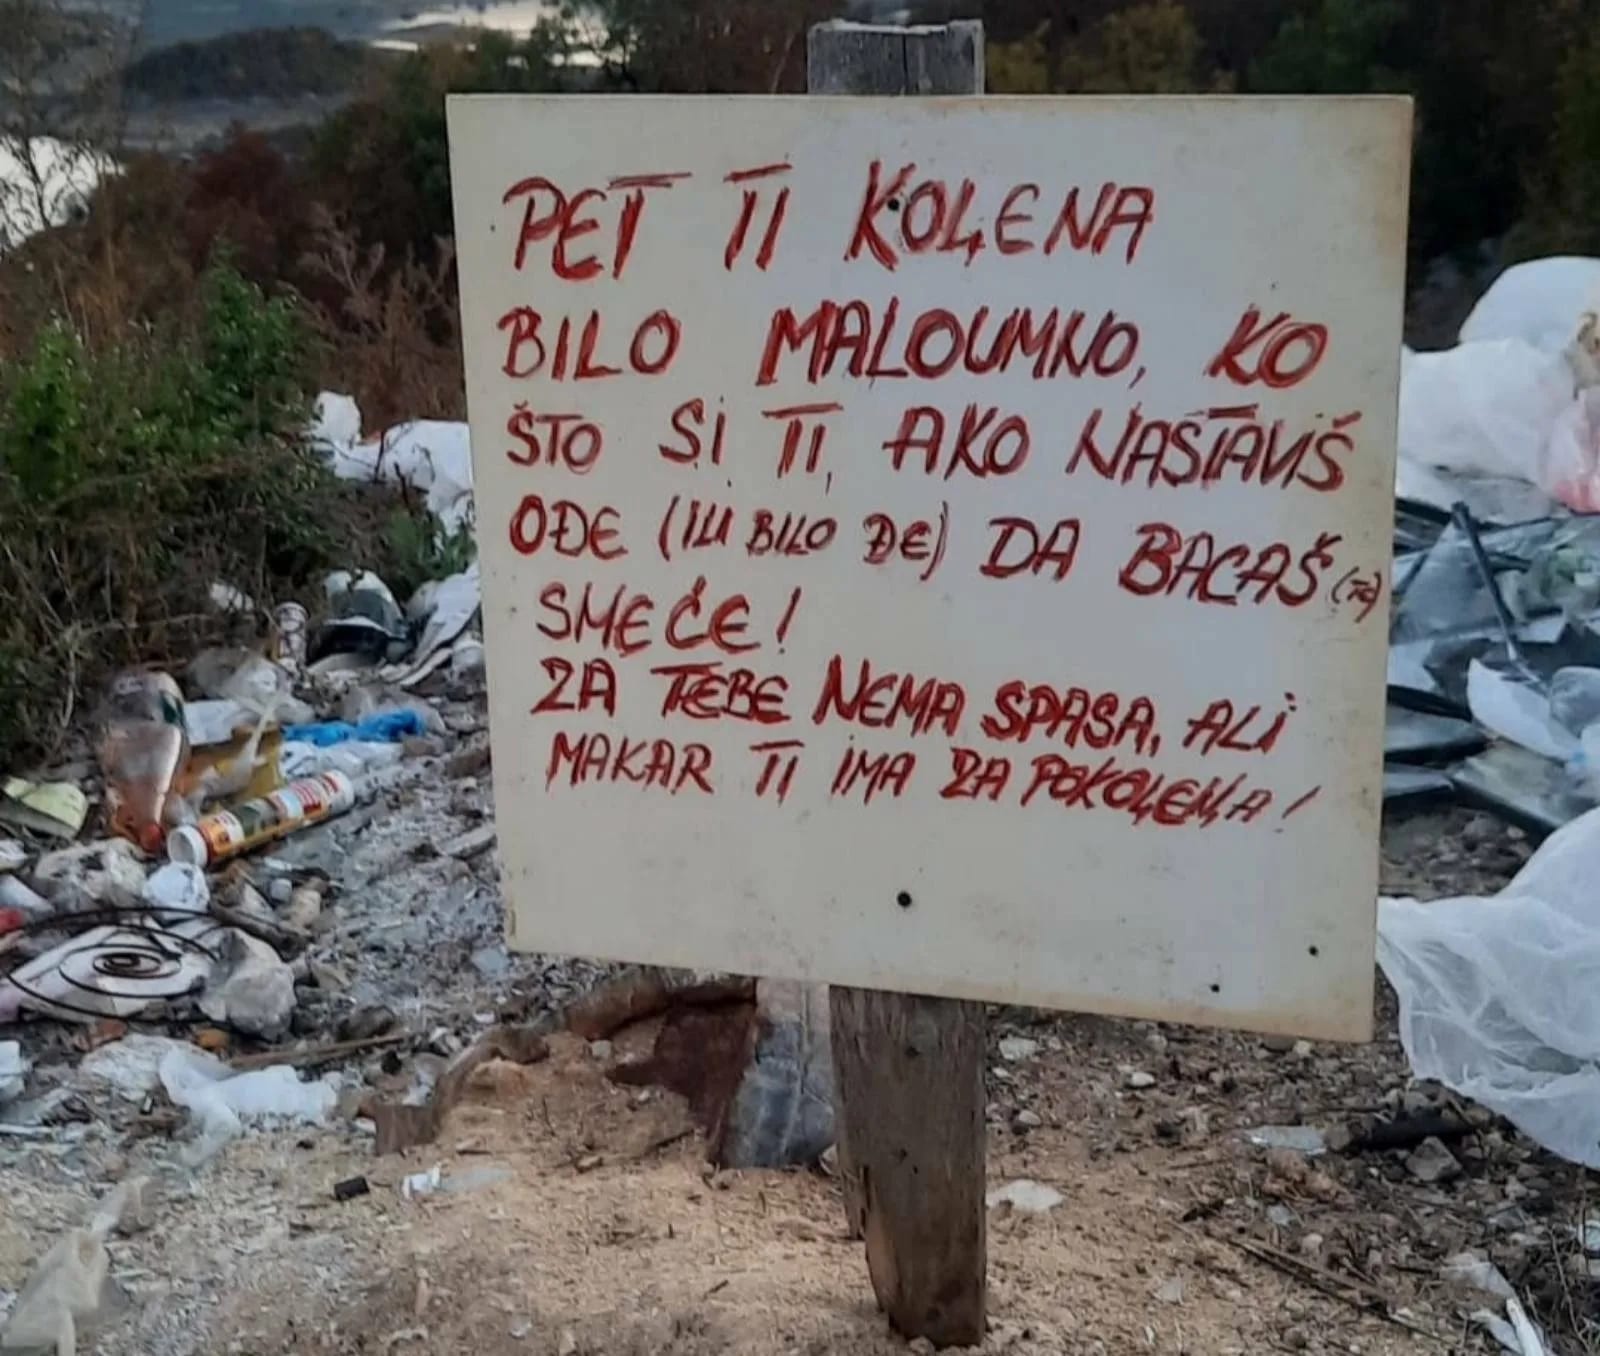 PET TI KOĻENA
BILO MALOUMNO, KO
ŠTO SI TI, AKO NASTAVIŠ
OĐE (ILI BILO ĐE) DA BACAŠ (TE)
SMEĆE!
ZA TEBE NEMA SPASA, ALI
MAKAR TI IMA ZA POKOĻEŅA!